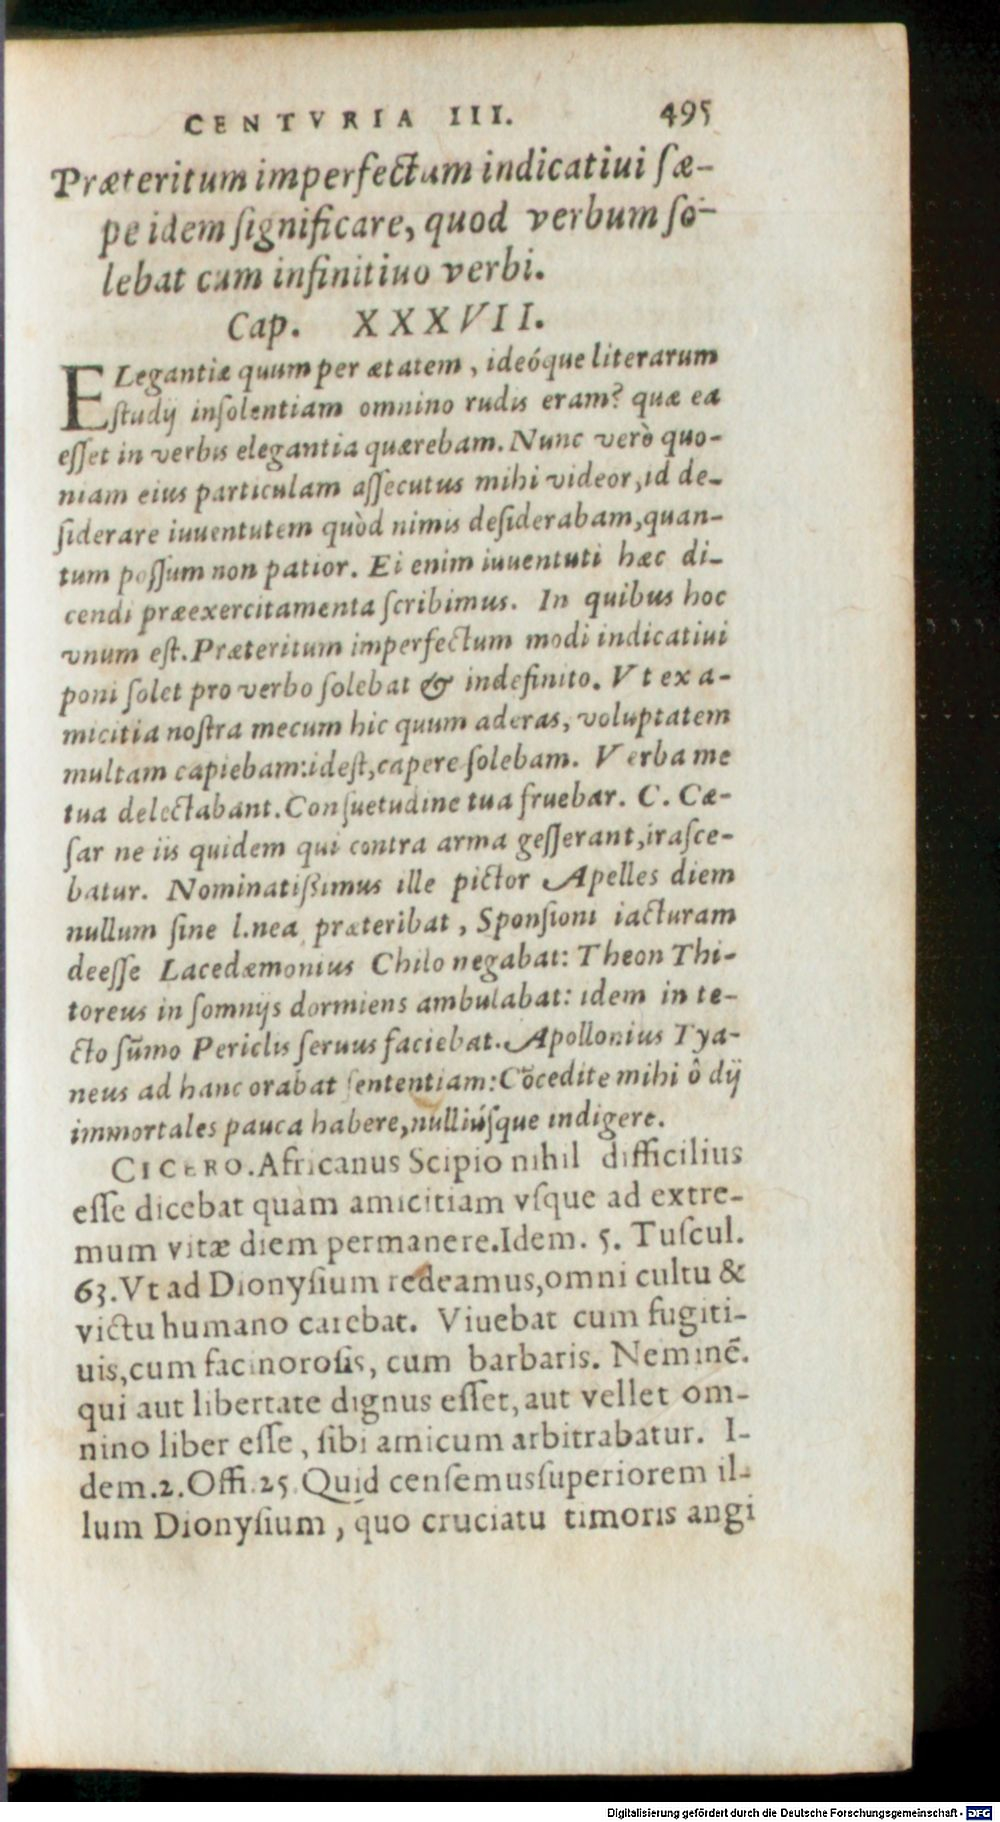 CENTVRIA III. 495
Præteritum imperfectum indicatiui ſæ-
pe idem ſignificare, quod verbum ſo-
lebat cum infinitiuo verbi.
Cap. XXXVII.
ELegantiæ quum per ætatem, ideóque literarum
ſtudij inſolentiam omnino rudis eram? quæ ea
eſſet in verbis elegantia quærebam. Nunc verò quo-
niam eius particulam aſſecutus mihi videor, id de-
ſiderare iuuentutem quòd nimis deſiderabam, quan-
tum poſſum non patior. Ei enim iuuentuti hæc di-
cendi præexercitamenta ſcribimus. In quibus hoc
vnum eſt. Præteritum imperfectum modi indicatiui
poni ſolet pro verbo ſolebat & indefinito. Vt ex a-
micitia noſtra mecum hic quum aderas, voluptatem
multam capiebam: id eſt, capere ſolebam. Verba me
tua delectabant. Conſuetudine tua fruebar. C. Cæ-
ſar ne iis quidem qui contra arma geſſerant, iraſce-
batur. Nominatiſſimus ille pictor Apelles diem
nullum ſine linea præteribat, Sponſioni iacturam
deeſſe Lacedæmonius Chilo negabat: Theon Thi-
toreus in ſomnijs dormiens ambulabat: idem in te-
cto sũmo Periclis ſeruus faciebat. Apollonius Tya-
neus ad hanc orabat ſententiam: Cõcedite mihi ô dij
immortales pauca habere, nulliúſque indigere.
CICERO. Africanus Scipio nihil difficilius
eſſe dicebat quàm amicitiam vſque ad extre-
mum vitæ diem permanere. Idem. 5. Tuſcul.
63. Vt ad Dionyſium redeamus, omni cultu &
victu humano carebat. Viuebat cum fugiti-
uis, cum facinoroſis, cum barbaris. Neminẽ.
qui aut libertate dignus eſſet, aut vellet om-
nino liber eſſe, ſibi amicum arbitrabatur. I-
dem. 2. Offi. 25. Quid cenſemus ſuperiorem il-
lum Dionyſium, quo cruciatu timoris angi
Digitalisierung gefördert durch die Deutsche Forschungsgemeinschaft - DFG